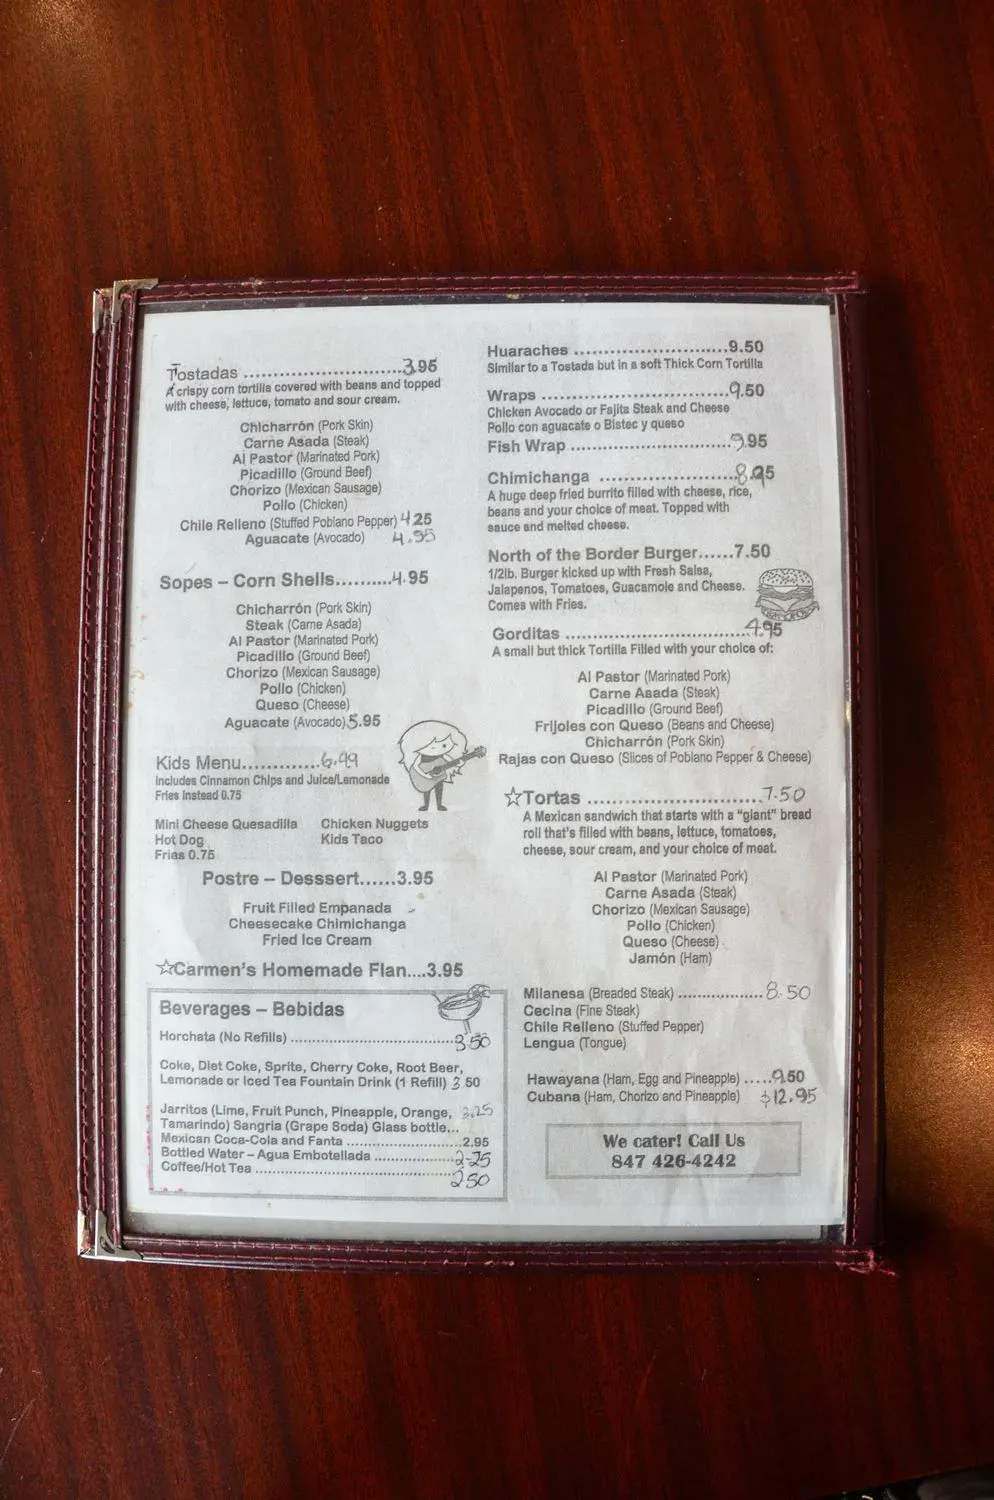 Tostadas ............................3.95
A crispy corn tortilla covered with beans and topped
with cheese, lettuce, tomato and sour cream.
Chicharrón (Pork Skin)
Carne Asada (Steak)
Al Pastor (Marinated Pork)
Picadillo (Ground Beef)
Chorizo (Mexican Sausage)
Pollo (Chicken)
Chile Relleno (Stuffed Poblano Pepper) 4 25
Aguacate (Avocado) 4.95
Sopes – Corn Shells..........4.95
Chicharrón (Pork Skin)
Steak (Carne Asada)
Al Pastor (Marinated Pork)
Picadillo (Ground Beef)
Chorizo (Mexican Sausage)
Pollo (Chicken)
Queso (Cheese)
Aguacate (Avocado) 5.95
Kids Menu.............6.99
Includes Cinnamon Chips and Juice/Lemonade
Fries Instead 0.75
Mini Cheese Quesadilla Chicken Nuggets
Hot Dog Kids Taco
Fries 0.75
Postre – Desssert......3.95
Fruit Filled Empanada
Cheesecake Chimichanga
Fried Ice Cream
☆Carmen's Homemade Flan....3.95
Beverages – Bebidas
Horchata (No Refills) ...............................................3.50
Coke, Diet Coke, Sprite, Cherry Coke, Root Beer,
Lemonade or Iced Tea Fountain Drink (1 Refill) 3 50
Jarritos (Lime, Fruit Punch, Pineapple, Orange, 3.25
Tamarindo) Sangria (Grape Soda) Glass bottle...
Mexican Coca-Cola and Fanta .................................2.95
Bottled Water – Agua Embotellada .........................2.25
Coffee/Hot Tea .....................................................2.50
Huaraches .............................9.50
Similar to a Tostada but in a soft Thick Corn Tortilla
Wraps ...................................9.50
Chicken Avocado or Fajita Steak and Cheese
Pollo con aguacate o Bistec y queso
Fish Wrap ..............................9.95
Chimichanga ..........................8.95
A huge deep fried burrito filled with cheese, rice,
beans and your choice of meat. Topped with
sauce and melted cheese.
North of the Border Burger......7.50
1/2lb. Burger kicked up with Fresh Salsa,
Jalapenos, Tomatoes, Guacamole and Cheese.
Comes with Fries.
Gorditas ..................................4.95
A small but thick Tortilla Filled with your choice of:
Al Pastor (Marinated Pork)
Carne Asada (Steak)
Picadillo (Ground Beef)
Frijoles con Queso (Beans and Cheese)
Chicharrón (Pork Skin)
Rajas con Queso (Slices of Poblano Pepper & Cheese)
☆Tortas .................................7.50
A Mexican sandwich that starts with a "giant" bread
roll that's filled with beans, lettuce, tomatoes,
cheese, sour cream, and your choice of meat.
Al Pastor (Marinated Pork)
Carne Asada (Steak)
Chorizo (Mexican Sausage)
Pollo (Chicken)
Queso (Cheese)
Jamón (Ham)
Milanesa (Breaded Steak) ....................8.50
Cecina (Fine Steak)
Chile Relleno (Stuffed Pepper)
Lengua (Tongue)
Hawayana (Ham, Egg and Pineapple) .....9.50
Cubana (Ham, Chorizo and Pineapple) $12.95
We cater! Call Us
847 426-4242